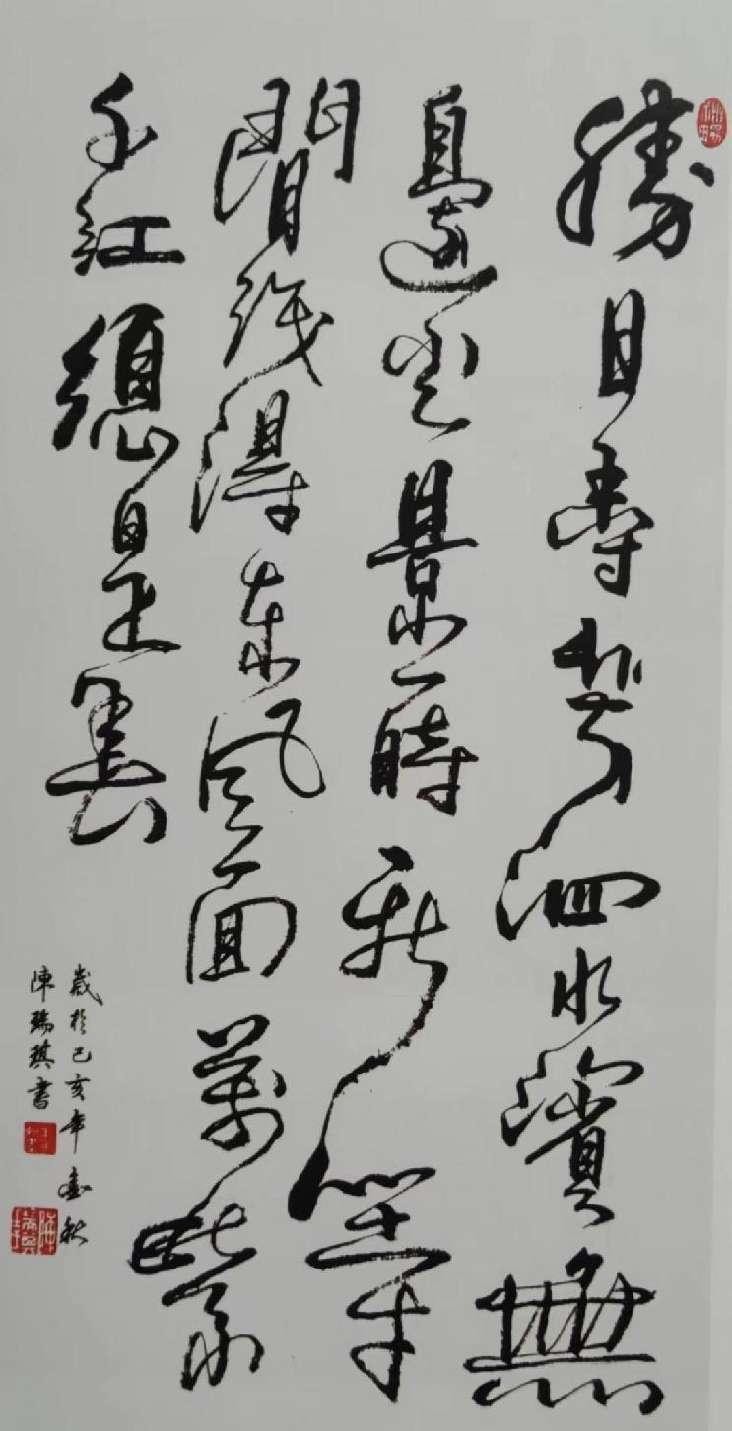 勝日尋芳泗水濱無
邊光景一時新等
閒識得東風面萬紫
千紅總是春
歲於己亥年金秋
陳瑞琪書